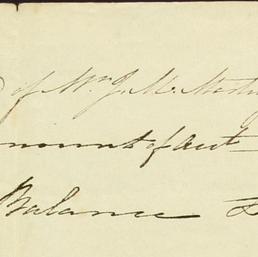 of Mr. J. M.
mount of Acct
Balance